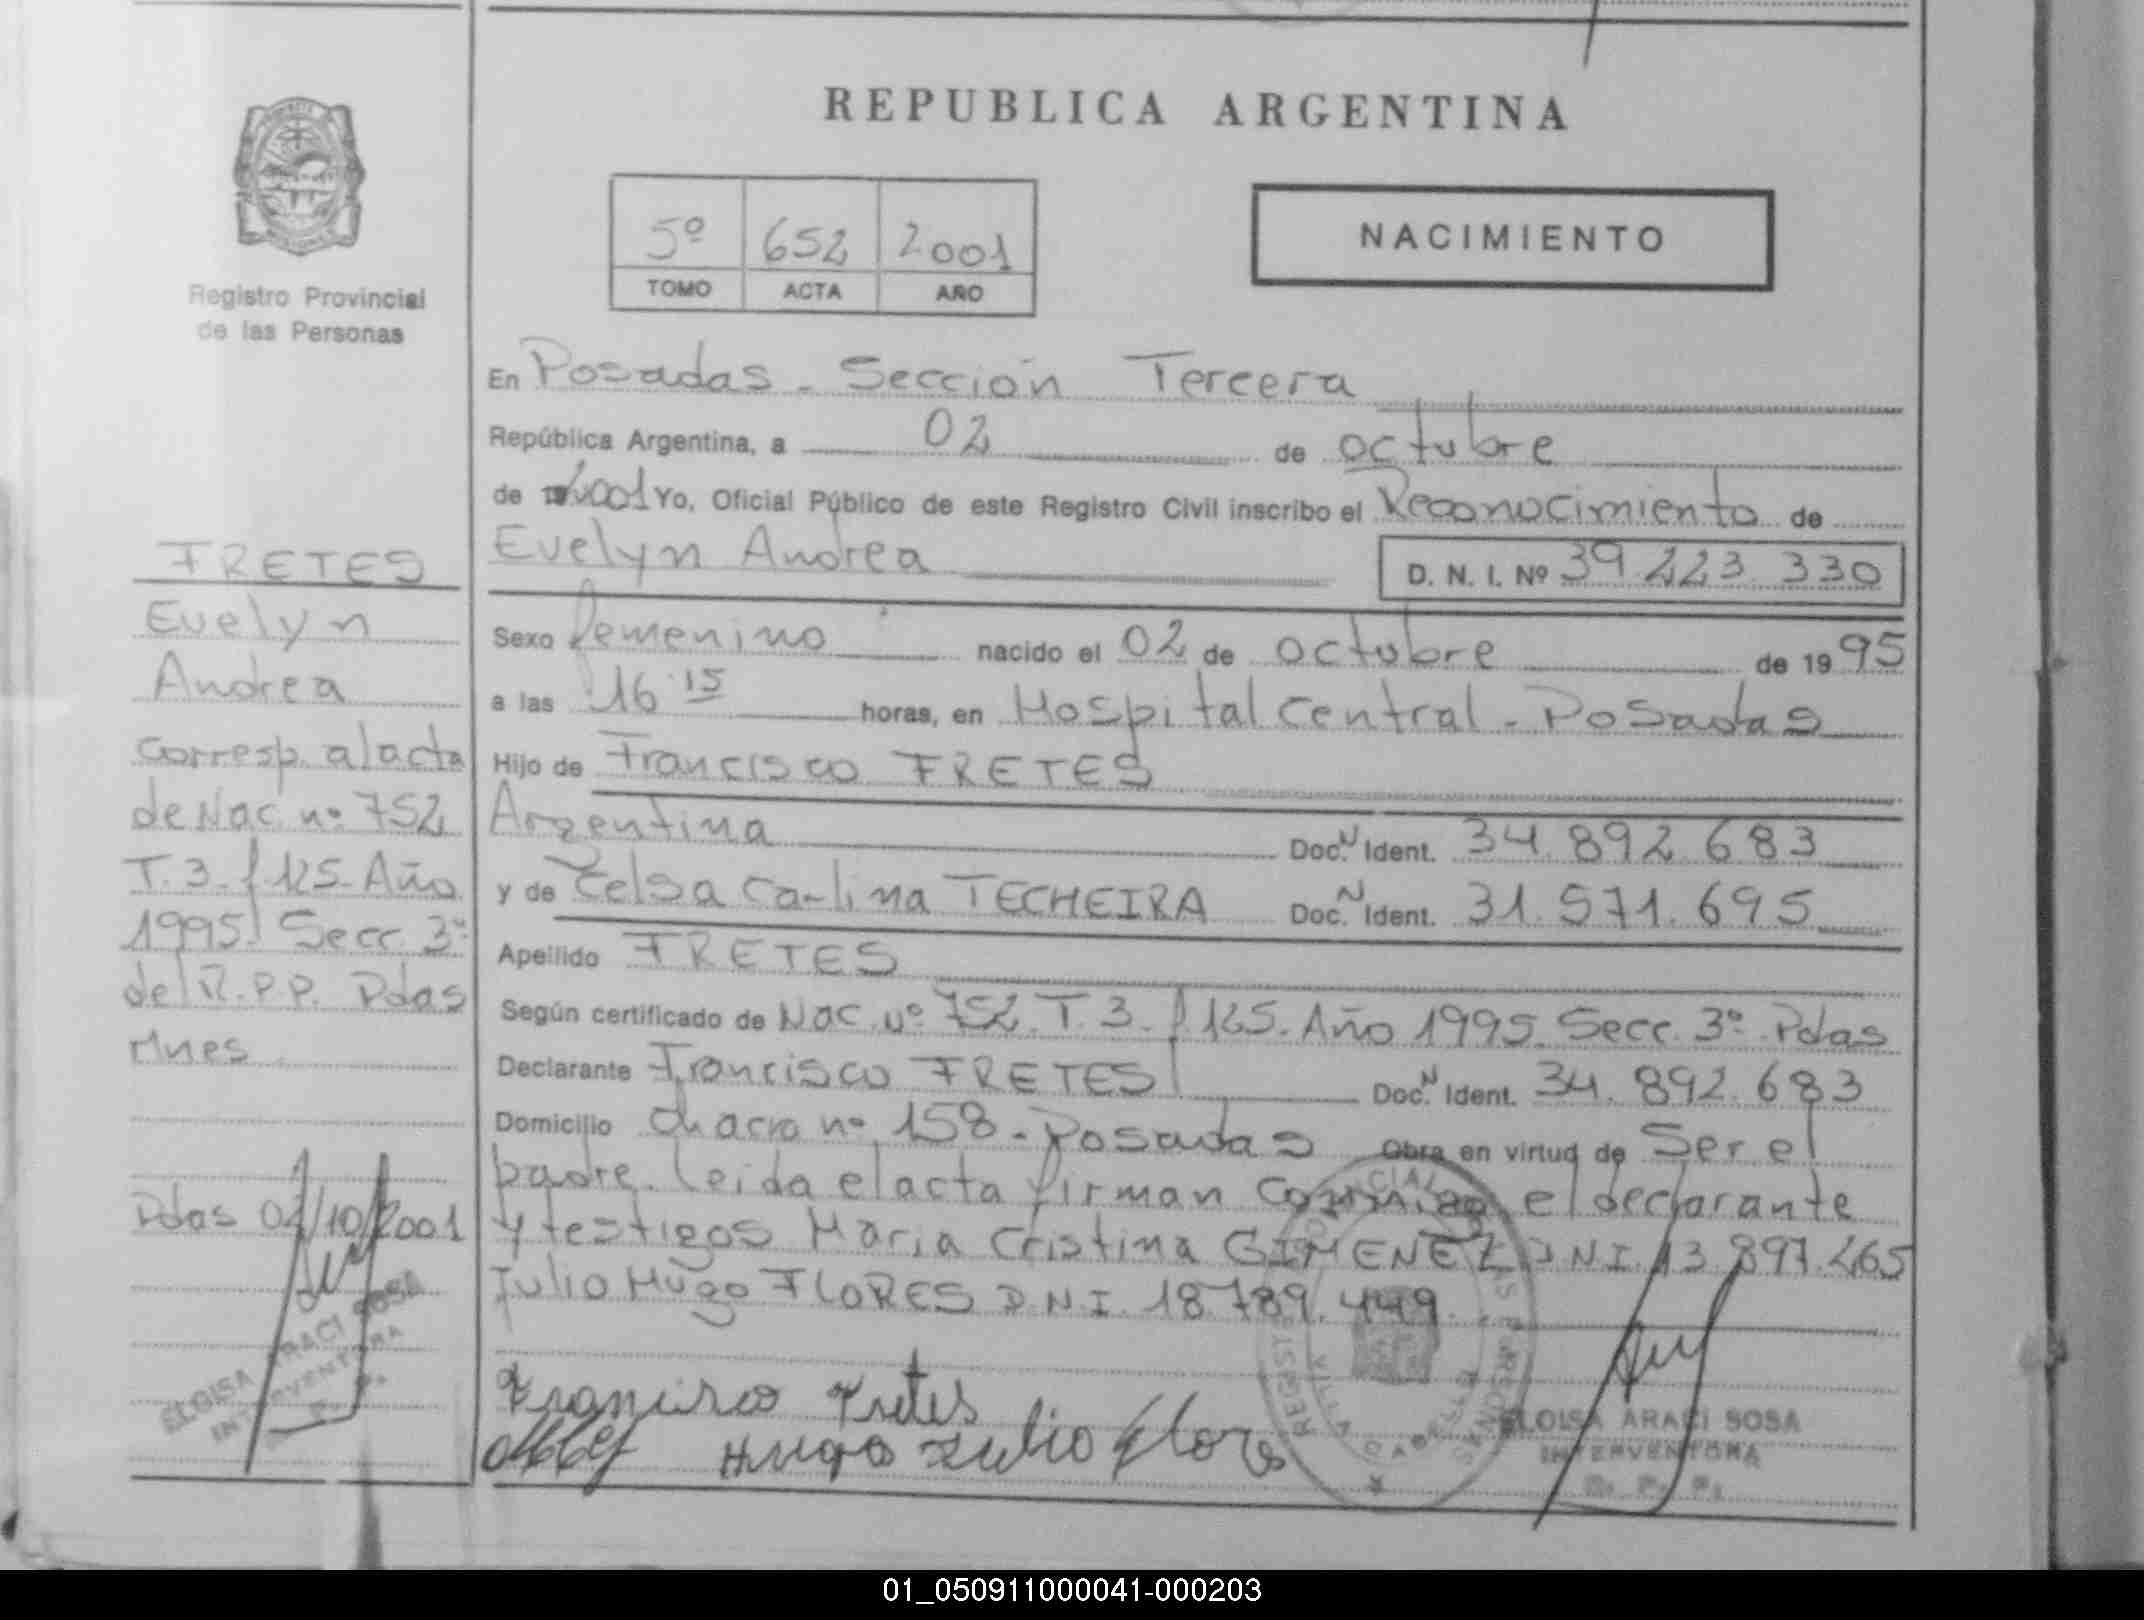 REPUBLICA ARGENTINA
Registro Provincial
de las Personas
5º 652 2001
TOMO ACTA AÑO
NACIMIENTO
En Posadas - Sección Tercera
República Argentina, a 02 de octubre
de 2001 Yo, Oficial Público de este Registro Civil inscribo el Reconocimiento de
Evelyn Andrea D. N. I. Nº 39.223.330
Sexo femenino nacido el 02 de octubre de 1995
a las 16 15 horas, en Hospital Central - Posadas
Hijo de Francisco FRETES
Argentina Doc. N Ident. 34.892.683
y de Celsa Carlina TECHEIRA Doc. N Ident. 31.571.695
Apellido FRETES
Según certificado de Nac. nº 752. T. 3. f 125. Año 1995. Secc. 3º Pdas
Declarante Francisco FRETES Doc. N Ident. 34.892.683
Domicilio Chacra nº 158 - Posadas Obra en virtud de Ser el
padre. Leida el acta firman conmigo el declarante
y testigos Maria Cristina GIMENEZ D.N.I. 13.897.265
Julio Hugo FLORES D.N.I. 18.789.449.
Francisco Fretes
Hugo Julio Flores
ELOISA ARACI SOSA
INTERVENTORA
R. P. P.
FRETES
Evelyn
Andrea
Corresp. al acta
de Nac. nº 752
T. 3. f 125. Año
1995. Secc. 3º
del R.P.P. Pdas
Mnes.
Pdas 02/10/2001
ELOISA ARACI SOSA
INTERVENTORA
R. P. P.
01_050911000041-000203